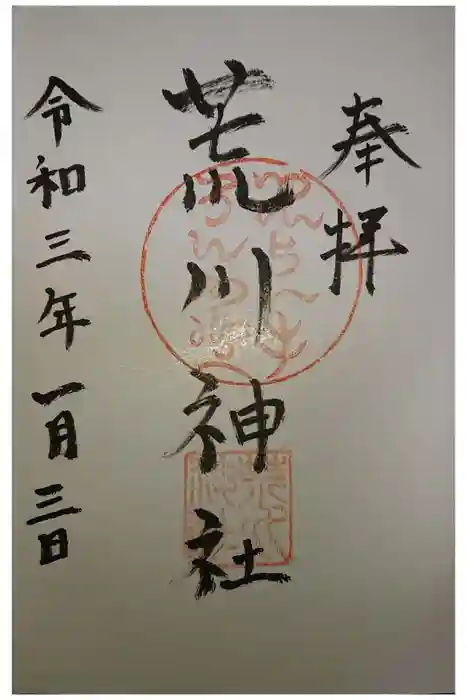 奉拝
荒川神社
令和三年一月三日